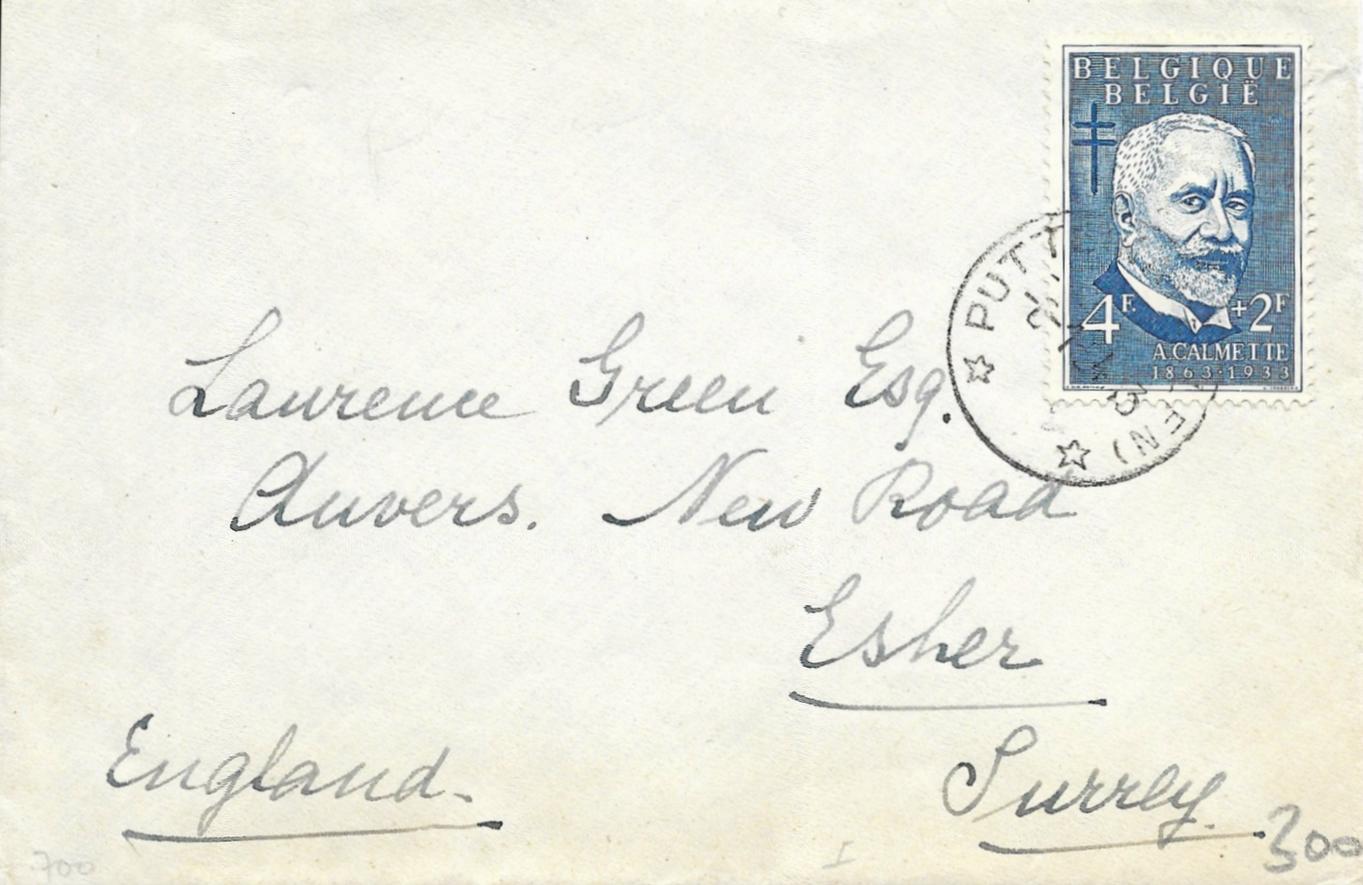 BELGIQUE
BELGIË
4F. +2F
A.CALMETTE
1863·1933
PUT EN)
Laurence Green Esq.
Anvers. New Road
Esher
Surrey.
England.
300
700
I